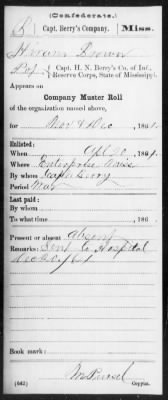 (Confederate.)
B | Capt. Berry's Company. | Miss.
Hiram Brown
Pvt., Capt. H. N. Berry's Co. of Inf.,
Reserve Corps, State of Mississippi.
Appears on
Company Muster Roll
of the organization named above,
for Nov & Dec, 1864.
Enlisted:
When Oct 20, 1864.
Where Enterprise Miss
By whom Capt Berry
Period War
Last paid:
By whom
To what time, 186 .
Present or absent Absent
Remarks: Sent to Hospital
Dec 20/64
(642)
Copyist.